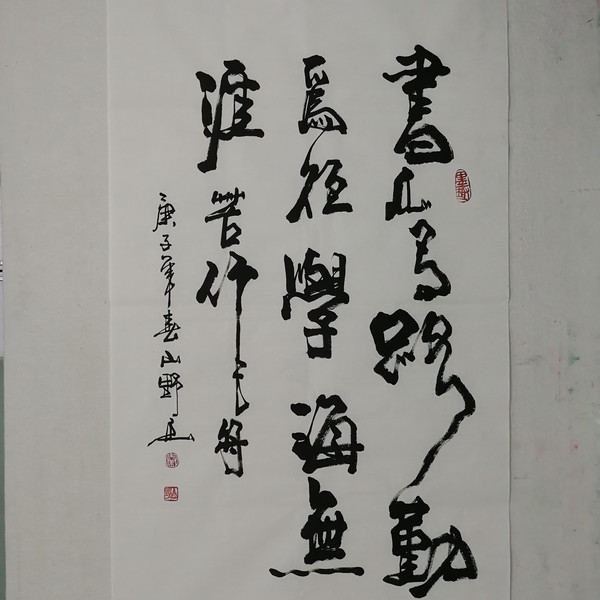 書山有路勤
爲徑學海無
涯苦作舟
庚子年春山野